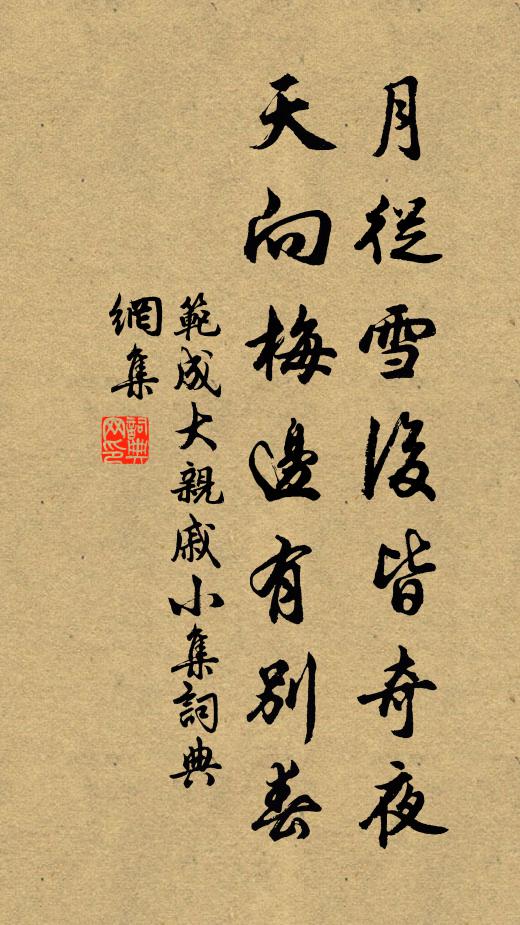 月從雪後皆奇夜
天向梅邊有別春
範成大親戚小集詞典
網集
詞典
网印